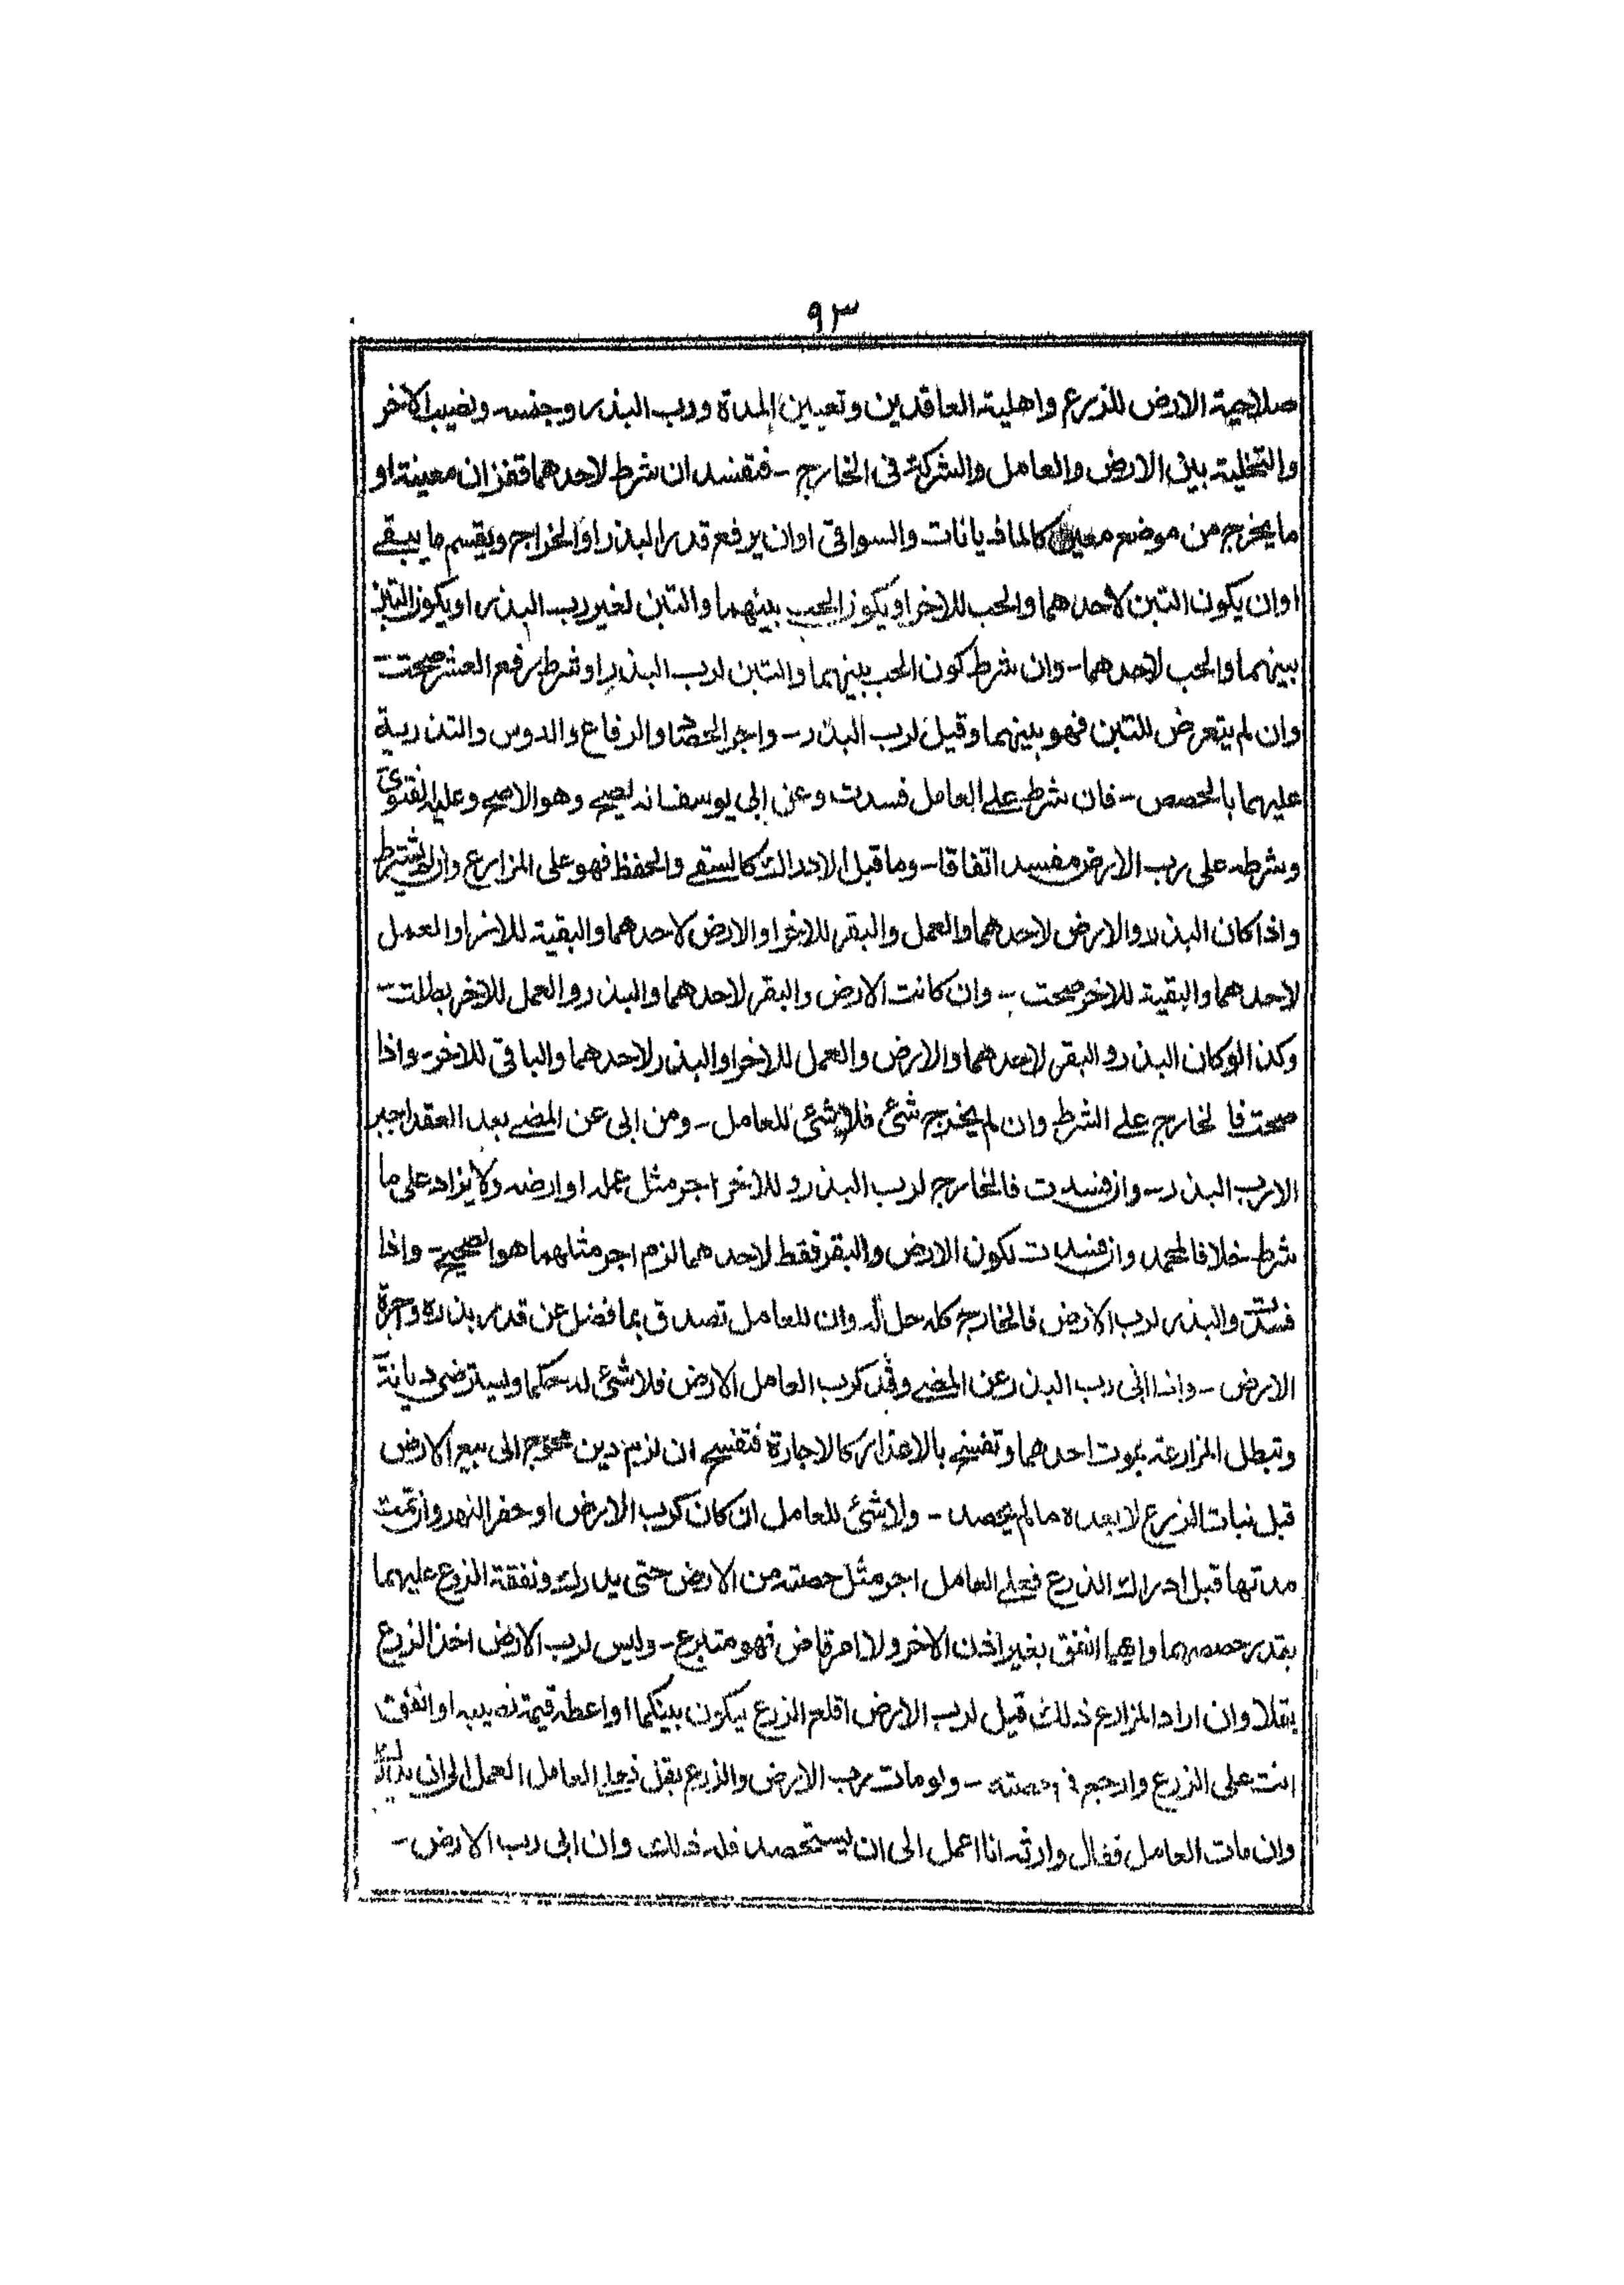 ٩٣
صلاحية الارض للزرع واهلية العاقدين وتعيين المدة ورب البذر وجنسه ونصيب الاخر
والتخلية بين الارض والعامل والشركة فى الخارج - فتفسد ان شرط لاحدهما قفزان معينة او
ما يخرج من موضع معين كالماذيانات والسواقى او ان يرفع قدر البذر او الخراج ويقسم ما يبقے
او ان يكون التبن لاحدهما والحب للاخر او يكون الحب بينهما والتبن لغير رب البذر او يكون التبن
بينهما والحب لاحدهما - وان شرط كون الحب بينهما والتبن لرب البذر او شرط رفع العشر صحت -
وان لم يتعرض للتبن فهو بينهما وقيل لرب البذر - واجر الحصاد والرفاع والدوس والتذرية
عليهما بالحصص - فان شرط علے العامل فسدت وعن ابى يوسف انه يصح وهو الاصح وعليه الفتوى
وشرطه على رب الارض مفسد اتفاقا - وما قبل الادراك كالسقے والحفظ فهو على المزارع وان لم يشترط
واذا كان البذر والارض لاحدهما والعمل والبقر للاخر او الارض لاحدهما والبقية للاخر او العمل
لاحدهما والبقية للاخر صحت - وان كانت الارض والبقر لاحدهما والبذر والعمل للاخر بطلت -
وكذا لو كان البذر والبقر لاحدهما والارض والعمل للاخر او البذر لاحدهما والباقى للاخر - واذا
صحت فالخارج علے الشرط وان لم يخرج شئ فلا شئ للعامل - ومن ابى عن المضے بعد العقد اجبر
الا رب البذر - وان فسدت فالخارج لرب البذر وللاخر اجر مثل عمله او ارضه ولا يزاد على ما
شرط خلافا لمحمد وان فسدت لكون الارض والبقر فقط لاحدهما لزم اجر مثلهما هو الصحيح - واذا
فسدت والبذر لرب الارض فالخارج كله حل له وان للعامل تصدق بما فضل عن قدر بذره واجرة
الارض - واذا ابى رب البذر عن المضے وقد كرب العامل الارض فلا شئ له حكما ويسترضى ديانة
وتبطل المزارعة بموت احدهما وتفسخ بالاعذار كالاجارة فتفسخ ان لزم دين محوج الى بيع الارض
قبل نبات الزرع لا بعده ما لم يحصد - ولا شئ للعامل ان كان كرب الارض او حفر النهر وان تمت
مدتها قبل ادراك الزرع فعلے العامل اجر مثل حصته من الارض حتى يدرك ونفقة الزرع عليهما
بقدر حصصهما وايهما انفق بغير اذن الاخر ولا امر قاض فهو متبرع - وليس لرب الارض اخذ الزرع
بقلا وان اراد المزارع ذلك قيل لرب الارض اقلع الزرع ليكون بينكما او اعطه قيمة نصيبه او انفق
انت على الزرع وارجع فى حصته - ولو مات رب الارض والزرع بقل فعلے العامل العمل الى ان يدرك
وان مات العامل فقال وارثه انا اعمل الى ان يستحصد فله ذلك وان ابى رب الارض -